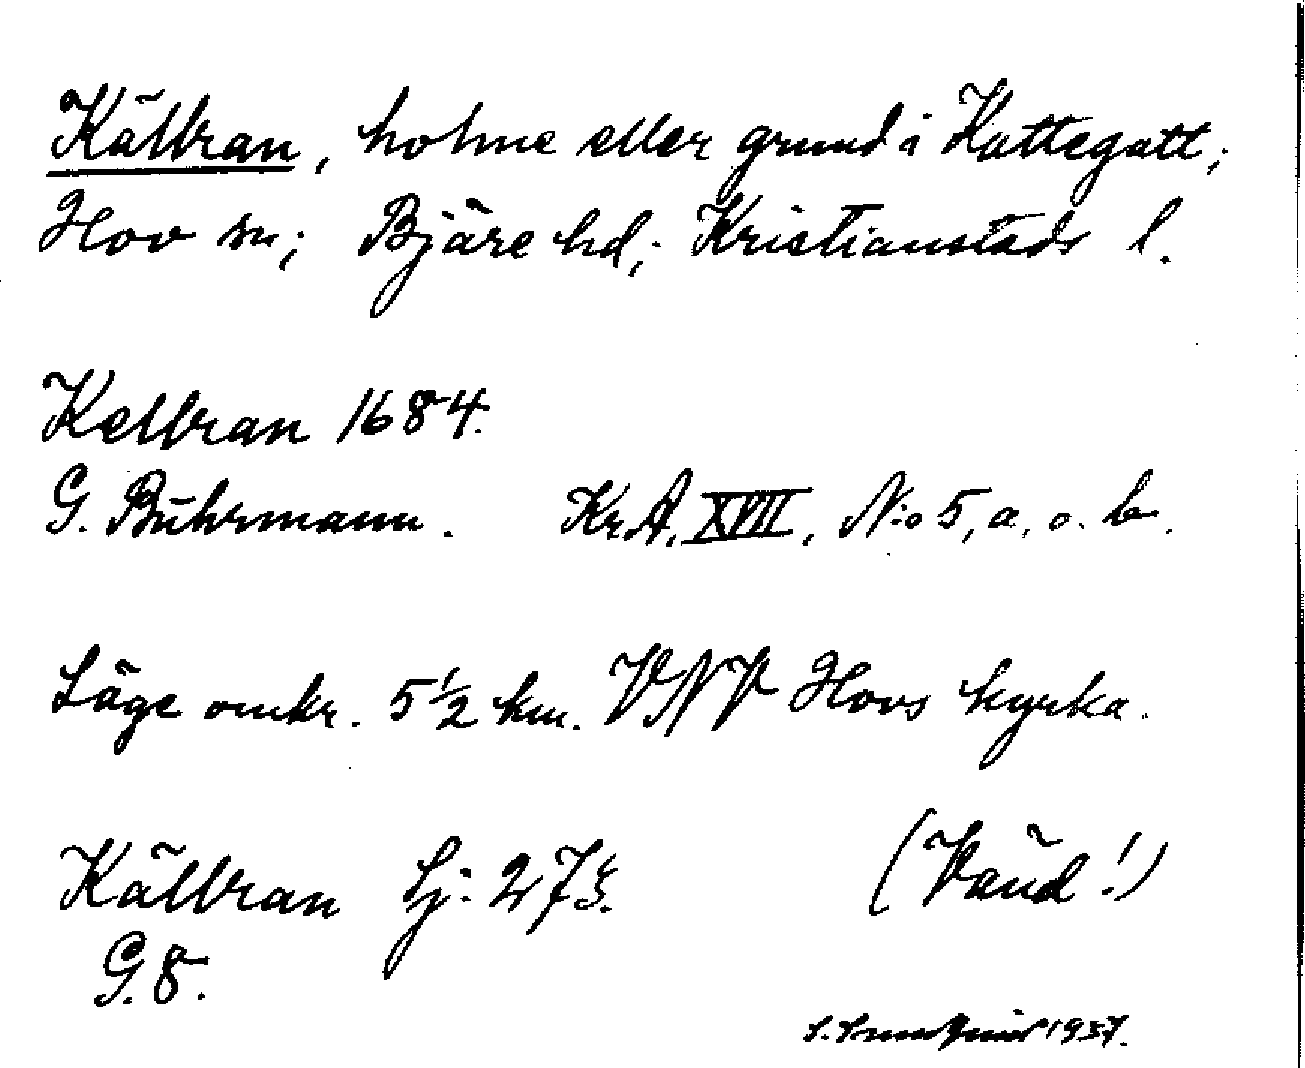 Källran, holme eller grund i Kattegatt;
Hov sn; Bjäre hd; Kristianstads l.
Kellran 1684.
G. Buhrmann. Kr.A. XVII, N:o 5, a. o. b.
Läge omkr. 5 1/2 km. VNV Hovs kyrka.
Källran Lj: 273. (Vänd!)
G.8.
1937.